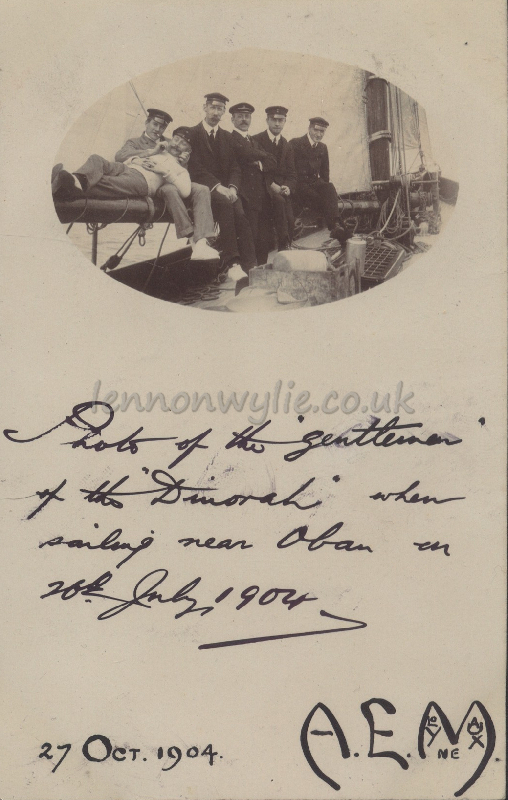 lennonwylie.co.uk
Photo of the "gentlemen"
of the "Dinorah" when
sailing near Oban on
20th July, 1904
27 OCT. 1904.
A.E.M